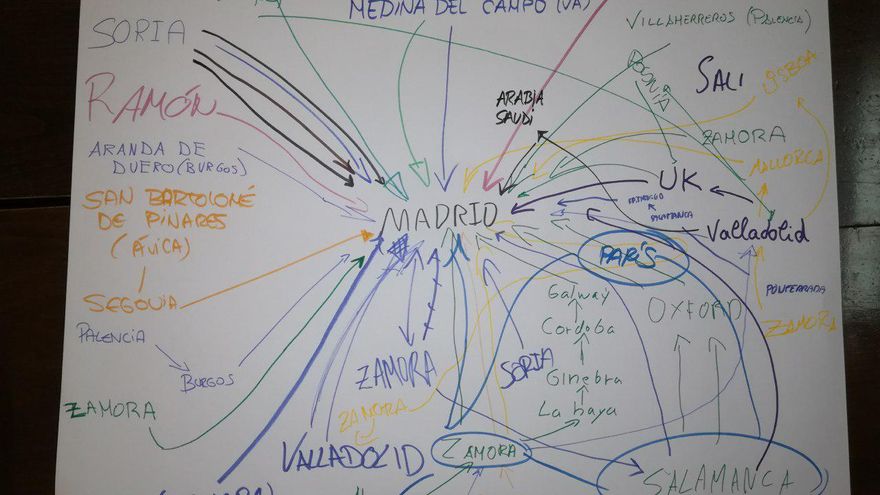 MEDINA DEL CAMPO (VA)
SORIA
VILLAHERREROS (PALENCIA)
RAMÓN
ARABIA
SAUDÍ
SALI
LISBOA
ARANDA DE
DUERO (BURGOS)
ZAMORA
MALLORCA
SAN BARTOLOMÉ
DE PINARES
(ÁVICA)
MADRID
UK
SALAMANCA
Valladolid
PARÍS
SEGOVIA
Galway
OXFORD
PONFERRADA
PALENCIA
Cordoba
ZAMORA
BURGOS
ZAMORA
SORIA
Ginebra
ZAMORA
ZAMORA
La haya
VALLADOLID
ZAMORA
SALAMANCA